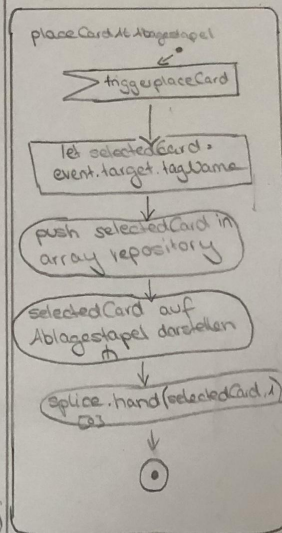 placeCardAtAblagestapel
triggerplaceCard
let selectedCard =
event.target.tagName
push selectedCard in
array repository
selectedCard auf
Ablagestapel darstellen
splice.hand(selectedCard,1)